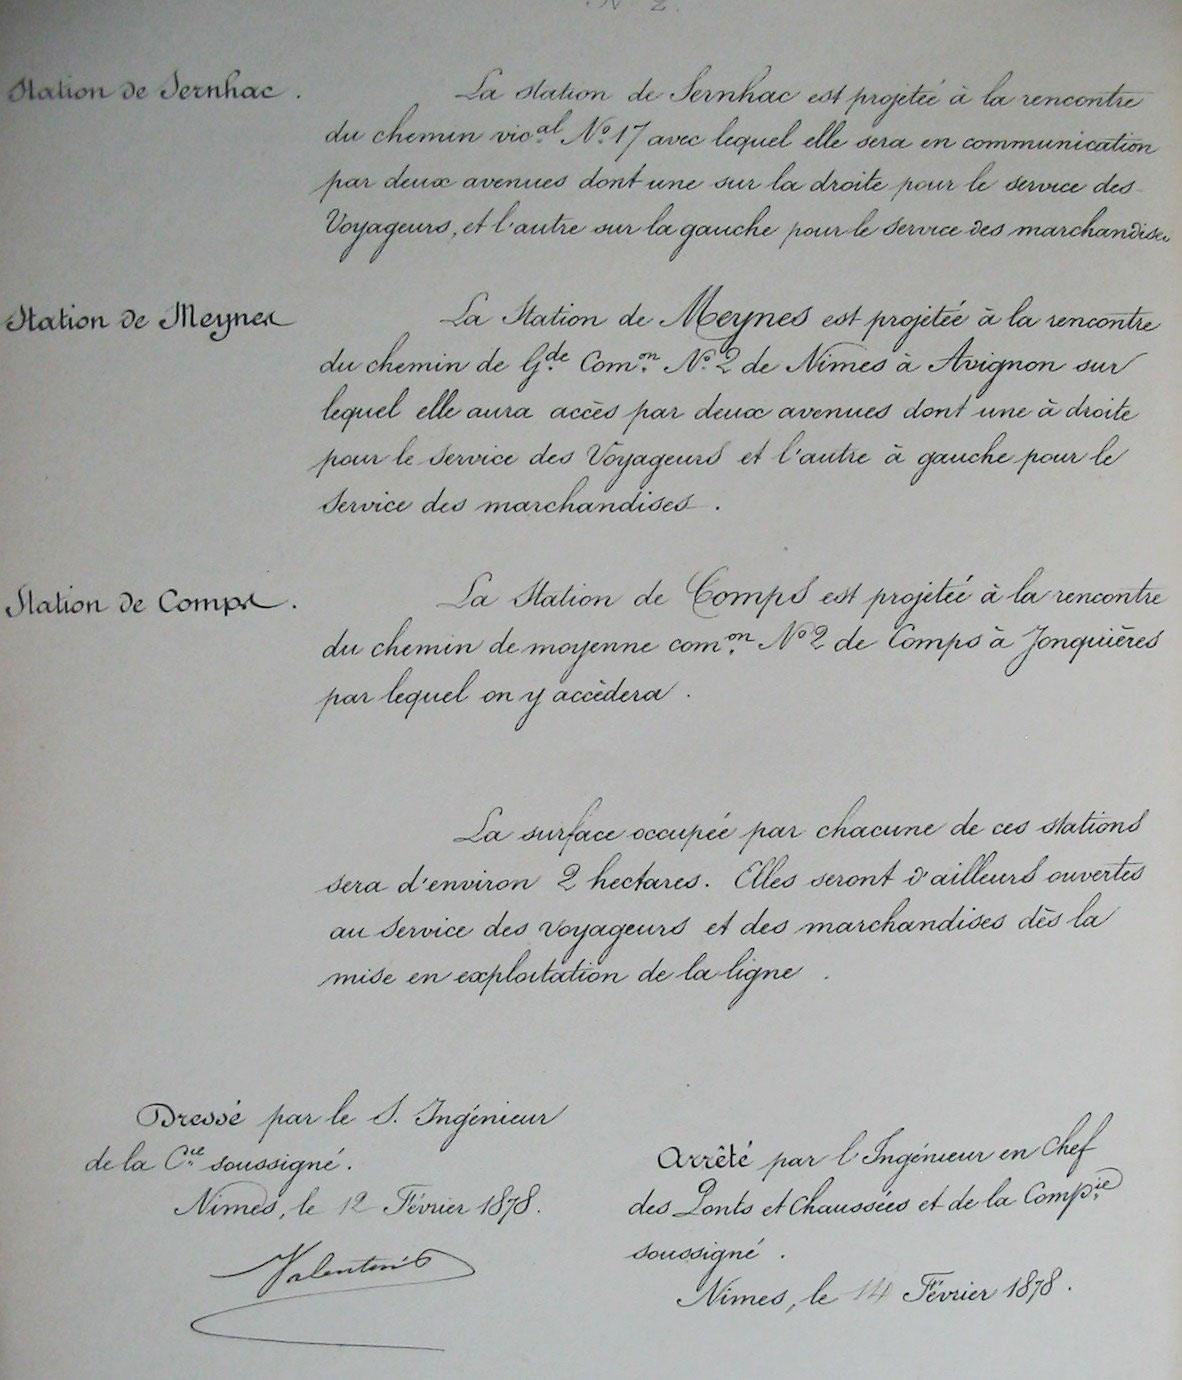 N° 2.
Station de Sernhac.
La station de Sernhac est projetée à la rencontre
du chemin vic.al N.o 17 avec lequel elle sera en communication
par deux avenues dont une sur la droite pour le service des
Voyageurs, et l'autre sur la gauche pour le service des marchandises
Station de Meynes
La Station de Meynes est projetée à la rencontre
du chemin de G.de Com.on N.o 2 de Nimes à Avignon sur
lequel elle aura accès par deux avenues dont une à droite
pour le service des Voyageurs et l'autre à gauche pour le
service des marchandises.
Station de Comps.
La Station de Comps est projetée à la rencontre
du chemin de moyenne com.on No 2 de Comps à Jonquières
par lequel on y accèdera.
La surface occupée par chacune de ces stations
sera d'environ 2 hectares. Elles seront d'ailleurs ouvertes
au service des voyageurs et des marchandises dès la
mise en exploitation de la ligne.
Dressé par le S. Ingénieur
de la C.ie soussigné.
Nimes, le 12 Février 1878.
Valentin
Arrêté par l'Ingénieur en Chef
des Ponts et Chaussées et de la Comp.ie
soussigné.
Nimes, le 14 Février 1878.